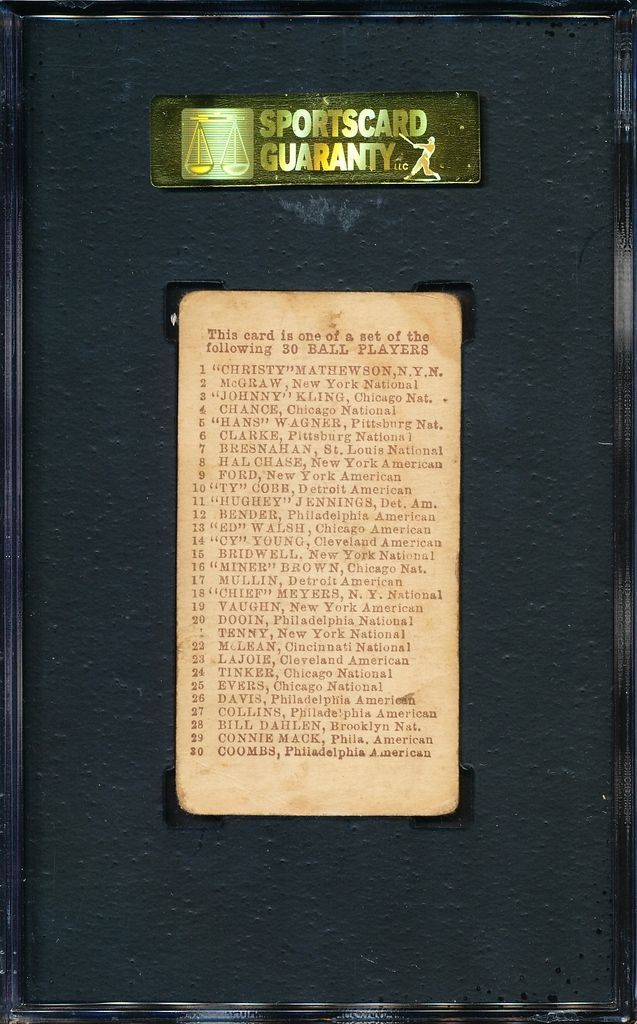 SPORTSCARD
GUARANTY LLC
This card is one of a set of the
following 30 BALL PLAYERS
1 "CHRISTY" MATHEWSON, N.Y.N.
2 McGRAW, New York National
3 "JOHNNY" KLING, Chicago Nat.
4 CHANCE, Chicago National
5 "HANS" WAGNER, Pittsburg Nat.
6 CLARKE, Pittsburg National
7 BRESNAHAN, St. Louis National
8 HAL CHASE, New York American
9 FORD, New York American
10 "TY" COBB, Detroit American
11 "HUGHEY" JENNINGS, Det. Am.
12 BENDER, Philadelphia American
13 "ED" WALSH, Chicago American
14 "CY" YOUNG, Cleveland American
15 BRIDWELL, New York National
16 "MINER" BROWN, Chicago Nat.
17 MULLIN, Detroit American
18 "CHIEF" MEYERS, N. Y. National
19 VAUGHN, New York American
20 DOOIN, Philadelphia National
1 TENNY, New York National
22 McLEAN, Cincinnati National
23 LAJOIE, Cleveland American
24 TINKER, Chicago National
25 EVERS, Chicago National
26 DAVIS, Philadelphia American
27 COLLINS, Philadelphia American
28 BILL DAHLEN, Brooklyn Nat.
29 CONNIE MACK, Phila. American
30 COOMBS, Philadelphia American